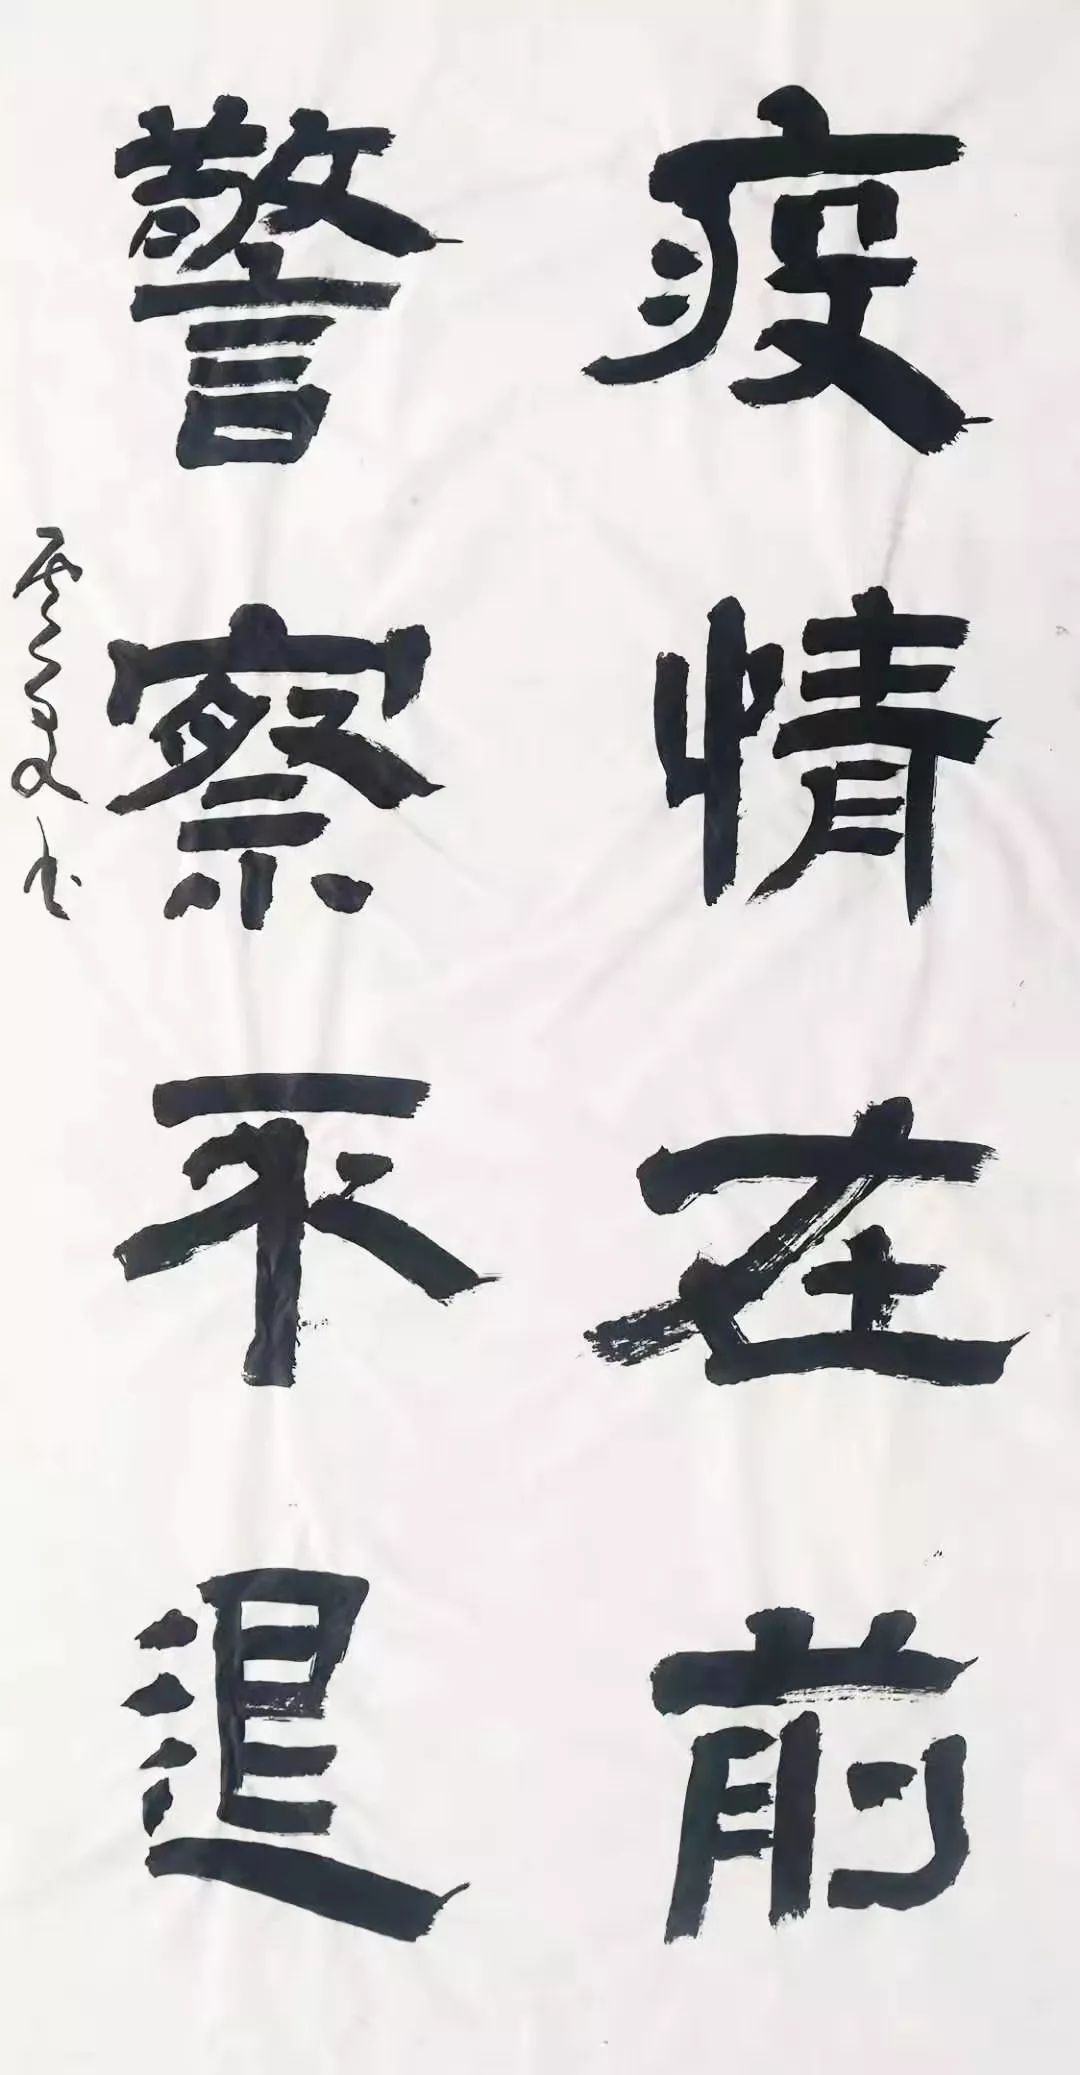 疫情在前
警察不退